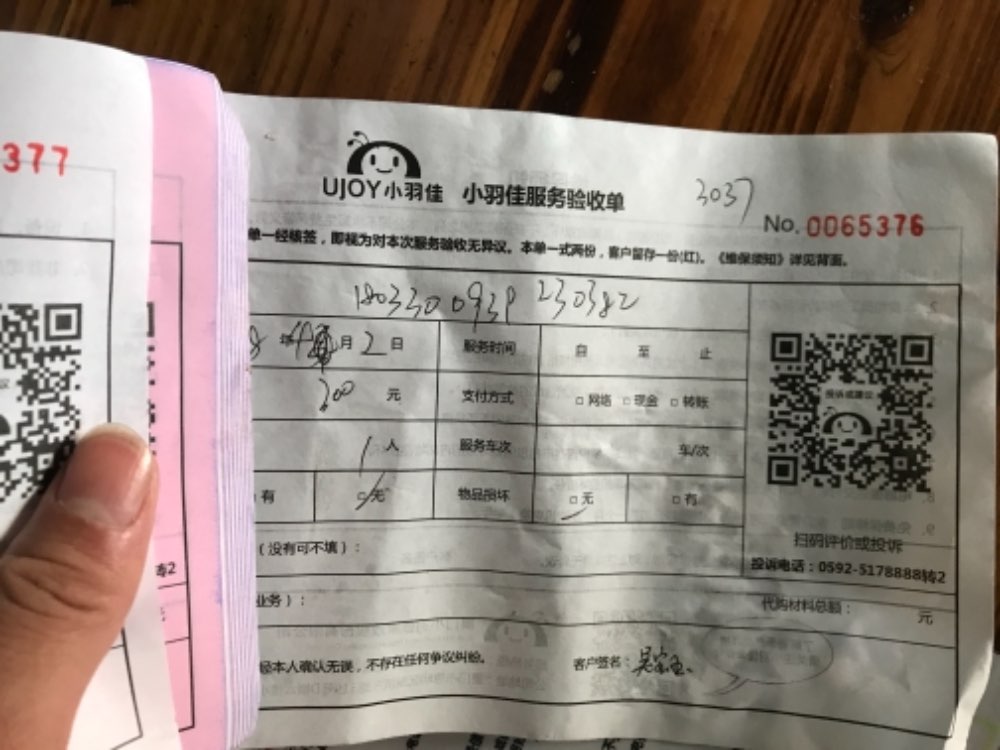 377
UJOY小羽佳 小羽佳服务验收单
3037
No. 0065376
单一经签,即视为对本次服务验收无异议。本单一式两份,客户留存一份(红)。《维保须知》详见背面。
230382
月 2 日 服务时间 自 至 止
300 元 支付方式 □网络 □现金 □转账
1 人 服务车次 车/次
有 □无 物品损坏 □无 □有
投诉或建议
扫码评价或投诉
投诉电话:0592-5178888转2
(没有可不填):
转2
业务): 代购材料总额: 元
经本人确认无误,不存在任何争议纠纷。 客户签名: